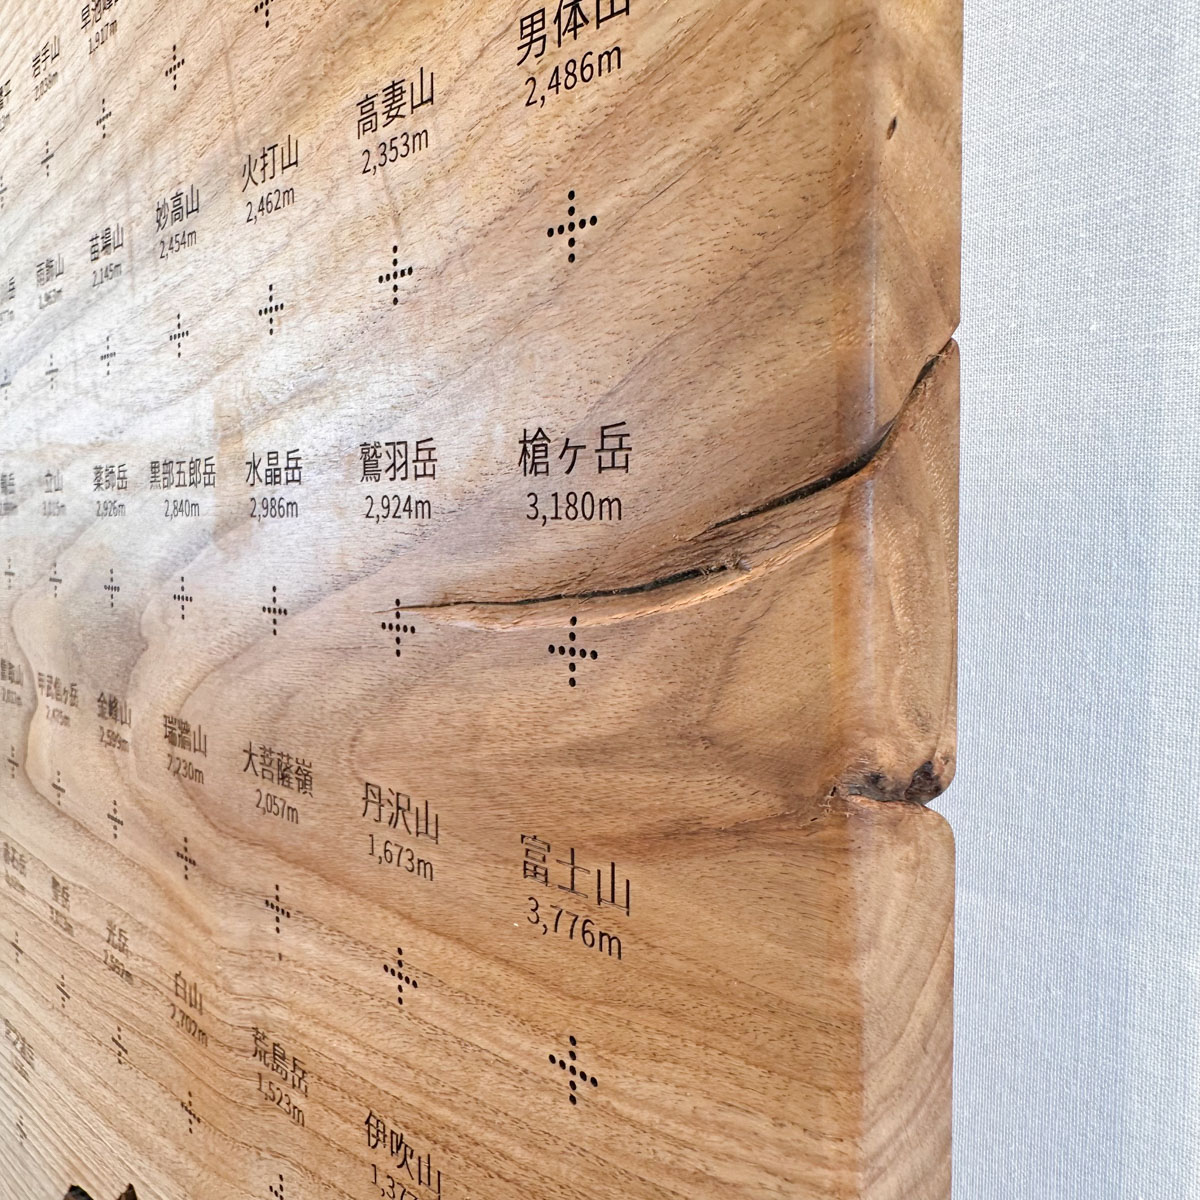 岩手山
2,038m
男体山
2,486m
高妻山
2,353m
火打山
2,462m
妙高山
2,454m
苗場山
2,145m
雨飾山
1,963m
槍ヶ岳
3,180m
鷲羽岳
2,924m
水晶岳
2,986m
黒部五郎岳
2,840m
薬師岳
2,926m
立山
3,015m
富士山
3,776m
丹沢山
1,673m
大菩薩嶺
2,057m
瑞牆山
2,230m
金峰山
2,599m
甲武信ヶ岳
2,475m
伊吹山
荒島岳
1,523m
白山
2,702m
光岳
聖岳